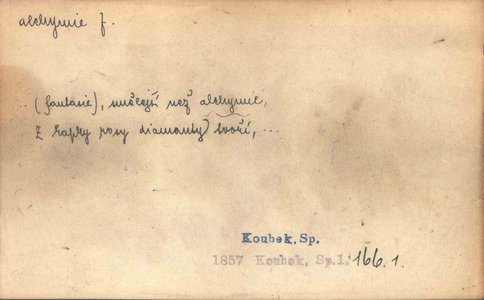 alchymie f.
.. (fantasie), mocnější než alchymie,
z kapky rosy diamanty tvoří, ...
Koubek, Sp.
1857 Koubek, Sp.1. 166.1.